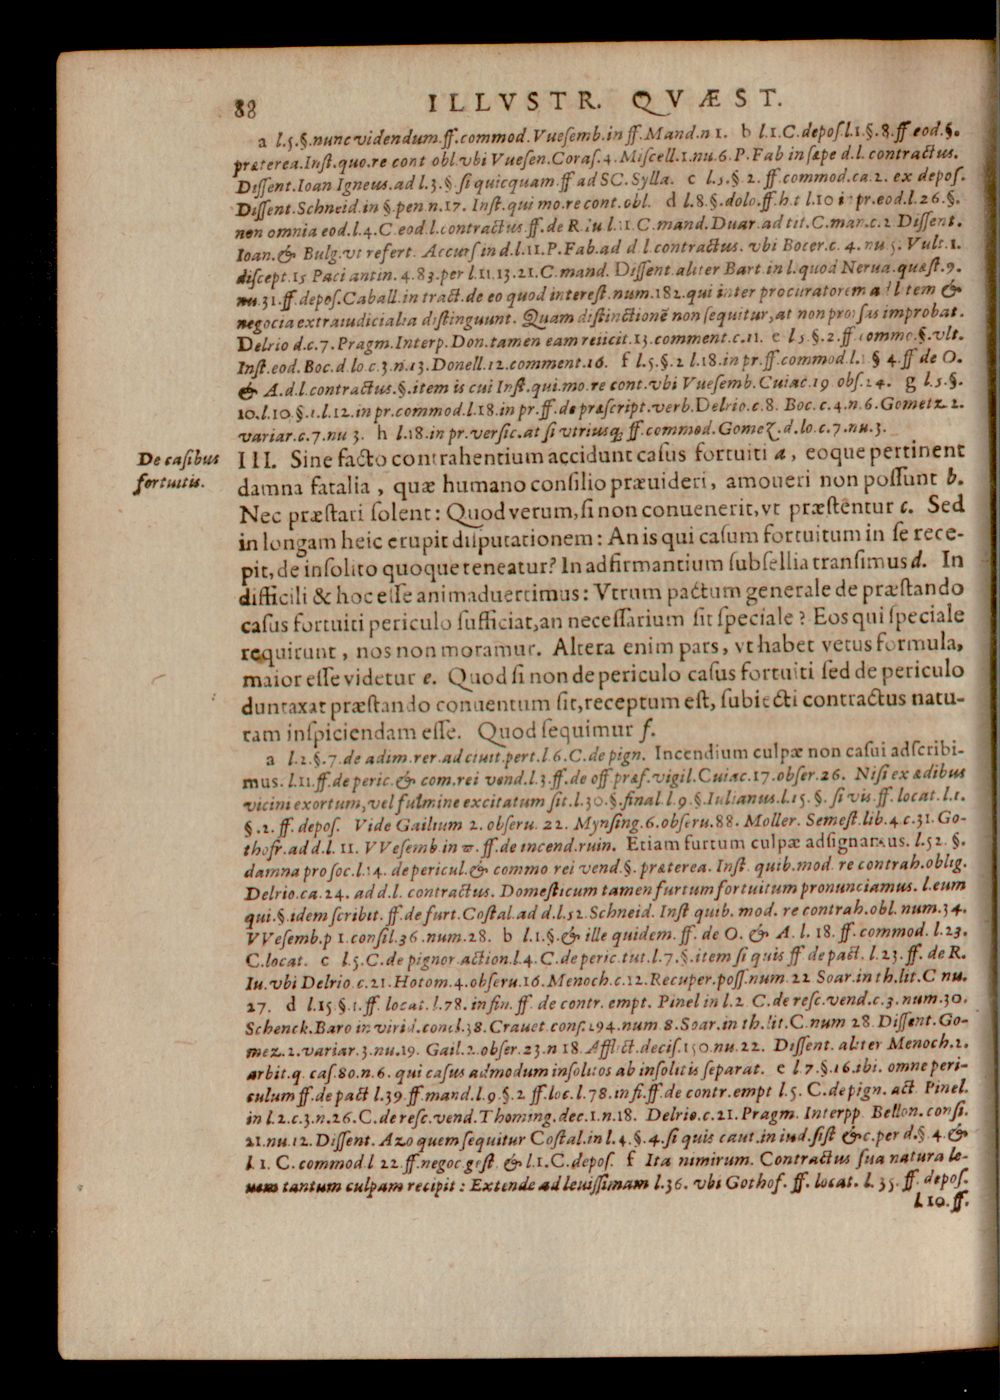 88 ILLVSTR. QVÆST.
a l.5.§.nunc videndum.ff.commod.Vuesemb.in ff.Mand.n 1. b l.1.C.depos.l.1.§.8.ff eod.§.
præterea.Inst.quo.re cont obl.vbi Vuesen.Coras.4.Miscell.1.nu.6.P.Fab in sæpe d.l.contractus.
Dissent.Ioan Igneus.ad l.3.§.si quicquam.ff ad SC.Sylla. c l.5.§ 2.ff.commod.ca.2. ex depos.
Dissent.Schneid.in §.pen.n.17. Inst.qui mo.re cont.obl. d l.8.§.dolo.ff.h.t l.10 in pr.eod.l.26.§.
non omnia eod.l.4.C eod.l.contractus.ff.de R.Iu l.11.C.mand.Duar.ad tit.C.man.c.2 Dissent.
Ioan.& Bulg.vt refert. Accurs in d.l.11.P.Fab.ad d l.contractus. vbi Bocer.c. 4. nu 5. Vult.1.
discept.15 Paci antin. 4.83.per l.11.13.21.C.mand. Dissent.aliter Bart.in l.quod Nerua.quæst.9.
nu.31.ff.depos.Caball.in tract.de eo quod interest.num.182.qui inter procuratorem ad l tem &
negocia extraiudicialia distinguunt. Quam distinctionē non sequitur,at non prorsus improbat.
Delrio d.c.7.Pragm.Interp.Don.tamen eam reiicit.13.comment.c.11. e l 5.§.2.ff.commo.§.vlt.
Inst.eod.Boc.d.lo c.3.n.13.Donell.12.comment.16. f l.5.§.2 l.18.in pr.ff.commod.l.1 § 4.ff de O.
& A.d.l.contractus.§.item is cui Inst.qui.mo.re cont.vbi Vuesemb.Cuiac.19 obs.24. g l.5.§.
10.l.10 §.1.l.12.in pr.commod.l.18.in pr.ff.de præscript.verb.Delrio.c.8. Boc.c.4.n.6.Gometz.2.
variar.c.7.nu 3. h l.18.in pr.versic.at si vtriusq; ff.commod.Gomez.d.lo.c.7.nu.3.
De casibus
fortuitis.
III. Sine facto contrahentium accidunt casus fortuiti a, eoque pertinent
damna fatalia, quæ humano consilio præuideri, amoueri non possunt b.
Nec præstari solent: Quod verum,si non conuenerit,vt præstentur c. Sed
in longam heic erupit disputationem: An is qui casum fortuitum in se rece-
pit,de insolito quoque teneatur? In adfirmantium subsellia transimus d. In
difficili & hoc esse animaduertimus: Vtrum pactum generale de præstando
casus fortuiti periculo sufficiat,an necessarium sit speciale? Eos qui speciale
requirunt, nos non moramur. Altera enim pars, vt habet vetus formula,
maior esse videtur e. Quod si non de periculo casus fortuiti sed de periculo
duntaxat præstando conuentum sit,receptum est, subiecti contractus natu-
ram inspiciendam esse. Quod sequimur f.
a l.2.§.7.de adim.rer.ad ciuit.pert.l 6.C.de pign. Incendium culpæ non casui adscribi-
mus. l.11.ff.de peric.& com.rei vend.l.3.ff.de off præf.vigil.Cuiac.17.obser.26. Nisi ex ædibus
vicini exortum,vel fulmine excitatum sit.l.30.§.final.l 9.§.Iulianus.l.15.§. si vis.ff.locat.l.1.
§.2.ff.depos. Vide Gailium 2. obseru. 22. Mynsing.6.obseru.88. Moller. Semest.lib.4 c.31.Go-
thofr.ad d.l. 11. VVesemb in π.ff.de incend.ruin. Etiam furtum culpæ adsignamus. l.52 §.
damna pro soc.l.14. de pericul.& commo rei vend.§. præterea. Inst. quib.mod. re contrah.oblig.
Delrio.ca.24. ad d.l. contractus. Domesticum tamen furtum fortuitum pronunciamus. l.eum
qui.§.idem scribit. ff.de furt.Costal.ad d.l.52.Schneid. Inst quib. mod. re contrah.obl. num.34.
VVesemb.p 1.consil.36.num.28. b l.1.§.& ille quidem.ff. de O. & A. l. 18. ff.commod. l.23.
C.locat. c l.5.C.de pignor.action.l.4.C.de peric.tut.l.7.§.item si quis ff de pact. l.23.ff. de R.
Iu.vbi Delrio.c.21.Hotom.4.obseru.16.Menoch.c.12.Recuper.poss.num.22 Soar.in th.lit.C nu.
27. d l.15.§.1.ff. locat.l.78. in fin. ff. de contr. empt. Pinel in l.2 C.de resc.vend.c.3.num.30.
Schenck.Baro in virid.concl.38.Crauet.cons.194.num 8.Soar.in th.lit.C.num 28. Dissent.Go-
mez.2.variar.3.nu.19. Gail.2.obser.23.n 18.Afflict.decis.150.nu.22. Dissent. aliter Menoch.2.
arbit.q. cas.80.n.6. qui casus admodum insolitos ab insolitis separat. e l 7.§.16.ibi. omne peri-
culum ff.de pact l.39.ff.mand.l.9.§.2 ff.loc.l.78.in fi.ff.de contr.empt l.5. C.de pign. act. Pinel.
in l.2.c.3.n.26.C.de resc.vend.Thoming.dec.1.n.18. Delrio.c.21.Pragm. Interpp. Bellon.consi.
21.nu.12.Dissent. Azo quem sequitur Costal.in l.4.§.4.si quis caut.in iud.sist &c.per d.§ 4.&
l.1. C.commod.l 22.ff.negoc.gest. & l.1.C.depos. f Ita nimirum. Contractus sua natura le-
uem tantum culpam recipit: Extende ad leuissimam l.36. vbi Gothof. ff. locat. l. 35. ff.depos.
l.10.ff.